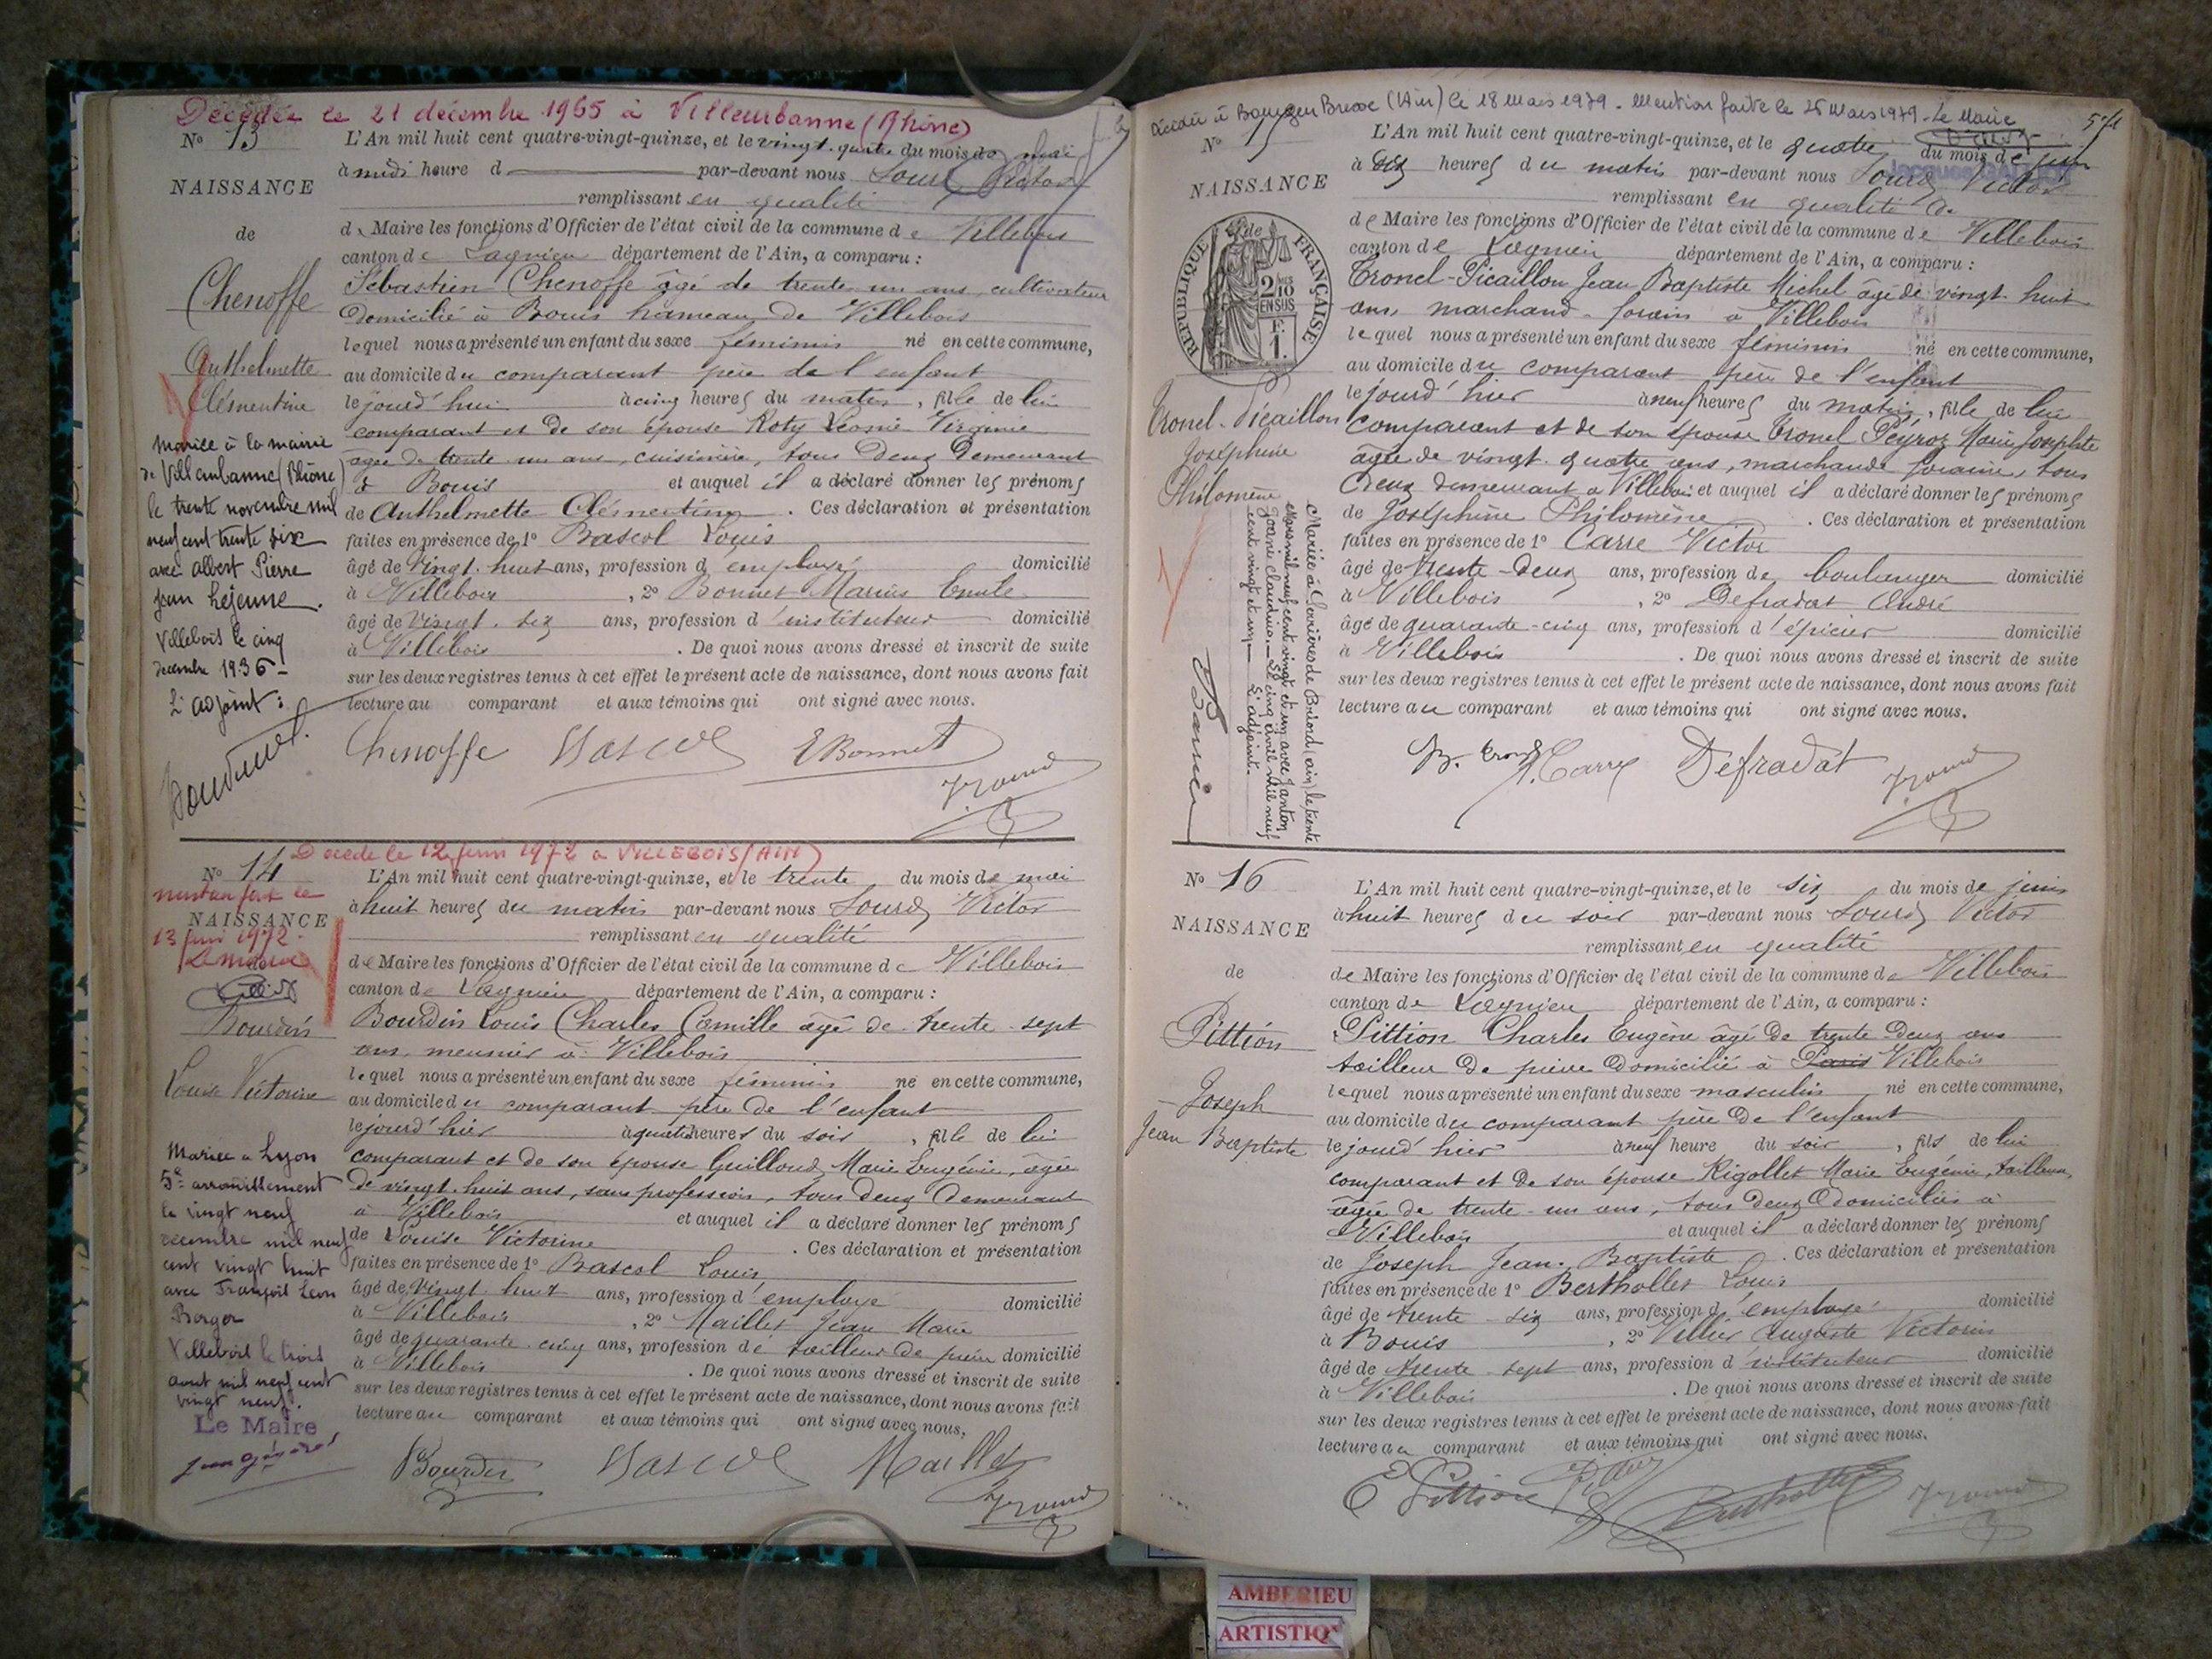 Décédée le 21 décembre 1965 à Villeurbanne (Rhône)
No 13
NAISSANCE
de
Chenoffe
Anthelmette
Clémentine
Mariée à la mairie
de Villeurbanne (Rhône)
le trente novembre mil
neuf cent trente six
avec Albert Pierre
Jean Lejeune.
Villebois le cinq
decembre 1936
L'adjoint:
L'An mil huit cent quatre-vingt-quinze, et le vingt-quatre du mois de mai
à midi heure d par-devant nous Sourd Victor
remplissant en qualité
de Maire les fonctions d'Officier de l'état civil de la commune de Villebois
canton de Lagnieu département de l'Ain, a comparu :
Sébastien Chenoffe âgé de trente un ans, cultivateur
domicilié à Bouis hameau de Villebois
lequel nous a présenté un enfant du sexe féminin né en cette commune,
au domicile du comparant père de l'enfant
le jourd'hui à cinq heures du matin, fille de lui
comparant et de son épouse Roty Léonie Virginie
âgée de trente un ans, cuisinière, tous deux demeurant
à Bouis et auquel il a déclaré donner les prénoms
de Anthelmette Clémentine. Ces déclaration et présentation
faites en présence de 1° Bascol Louis
âgé de vingt-huit ans, profession d'employé domicilié
à Villebois, 2° Bonnet Marius Emile
âgé de vingt-six ans, profession d'instituteur domicilié
à Villebois. De quoi nous avons dressé et inscrit de suite
sur les deux registres tenus à cet effet le présent acte de naissance, dont nous avons fait
lecture au comparant et aux témoins qui ont signé avec nous.
Chenoffe Bascol E Bonnet
Décédée le 12 juin 1972 à VILLEBOIS (AIN)
No 14
mention faite le
NAISSANCE
13 juin 1972
Le maire
Bourdin
Louise Victorine
Mariée à Lyon
5e arrondissement
le vingt neuf
decembre mil neuf
cent vingt huit
avec François Leon
Berger
Villebois le trois
aout mil neuf cent
vingt neuf.
Le Maire
L'An mil huit cent quatre-vingt-quinze, et le trente du mois de mai
à huit heures du matin par-devant nous Sourd Victor
remplissant en qualité
de Maire les fonctions d'Officier de l'état civil de la commune de Villebois
canton de Lagnieu département de l'Ain, a comparu :
Bourdin Louis Charles Camille âgé de trente-sept
ans, meunier à Villebois
lequel nous a présenté un enfant du sexe féminin né en cette commune,
au domicile du comparant père de l'enfant
le jourd'hier à quatre heures du soir, fille de lui
comparant et de son épouse Guilloud Marie Eugénie, âgée
de vingt-huit ans, sans profession, tous deux demeurant
à Villebois et auquel il a déclaré donner les prénoms
de Louise Victorine. Ces déclaration et présentation
faites en présence de 1° Bascol Louis
âgé de vingt-huit ans, profession d'employé domicilié
à Villebois, 2° Maillet Jean Marie
âgé de quarante-cinq ans, profession de tailleur de pierre domicilié
à Villebois. De quoi nous avons dressé et inscrit de suite
sur les deux registres tenus à cet effet le présent acte de naissance, dont nous avons fait
lecture au comparant et aux témoins qui ont signé avec nous,
Bourdin Bascol Maillet
Décédée à Bourg en Bresse (Ain) le 18 Mars 1979. Mention faite le 26 Mars 1979. Le Maire
No 15
NAISSANCE
RÉPUBLIQUE FRANÇAISE
2/10
EN SUS
1 F.
Tronel-Picaillon
Joséphine
Philomène
Mariée à Serrières de Briord (ain) le trente
Mars mil neuf cent vingt et un avec Janton
Joanie Claudius. Le cinq Avril mil neuf
cent vingt et un. L'adjoint.
L'An mil huit cent quatre-vingt-quinze, et le quatre du mois de juin
à dix heures du matin par-devant nous Sourd Victor
remplissant en qualité de
de Maire les fonctions d'Officier de l'état civil de la commune de Villebois
canton de Lagnieu département de l'Ain, a comparu :
Tronel-Picaillon Jean Baptiste Michel âgé de vingt-huit
ans, marchand-forain à Villebois
lequel nous a présenté un enfant du sexe féminin né en cette commune,
au domicile du comparant père de l'enfant
le jourd'hier à neuf heures du matin, fille de lui
comparant et de son épouse Tronel Peyroz Marie Josephte
âgée de vingt-quatre ans, marchande foraine, tous
deux demeurant à Villebois et auquel il a déclaré donner les prénoms
de Joséphine Philomène. Ces déclaration et présentation
faites en présence de 1° Carre Victor
âgé de trente-deux ans, profession de boulanger domicilié
à Villebois, 2° Defradat André
âgé de quarante-cinq ans, profession d'épicier domicilié
à Villebois. De quoi nous avons dressé et inscrit de suite
sur les deux registres tenus à cet effet le présent acte de naissance, dont nous avons fait
lecture au comparant et aux témoins qui ont signé avec nous.
Defradat
No 16
NAISSANCE
de
Pittion
Joseph
Jean Baptiste
L'An mil huit cent quatre-vingt-quinze, et le six du mois de juin
à huit heures du soir par-devant nous Sourd Victor
remplissant en qualité
de Maire les fonctions d'Officier de l'état civil de la commune de Villebois
canton de Lagnieu département de l'Ain, a comparu :
Pittion Charles Eugène âgé de trente-deux ans
tailleur de pierre domicilié à Paris Villebois
lequel nous a présenté un enfant du sexe masculin né en cette commune,
au domicile du comparant père de l'enfant
le jourd'hier à neuf heure du soir, fils de lui
comparant et de son épouse Rigollet Marie Eugénie, tailleuse,
âgée de trente-un ans, tous deux domiciliés à
Villebois et auquel il a déclaré donner les prénoms
de Joseph Jean-Baptiste. Ces déclaration et présentation
faites en présence de 1° Berthollet Louis
âgé de trente-six ans, profession d'employé domicilié
à Bouis, 2° Villier Auguste Victorin
âgé de trente-sept ans, profession d'instituteur domicilié
à Villebois. De quoi nous avons dressé et inscrit de suite
sur les deux registres tenus à cet effet le présent acte de naissance, dont nous avons fait
lecture au comparant et aux témoins qui ont signé avec nous.
E Pittion Berthollet
AMBERIEU
ARTISTIQ